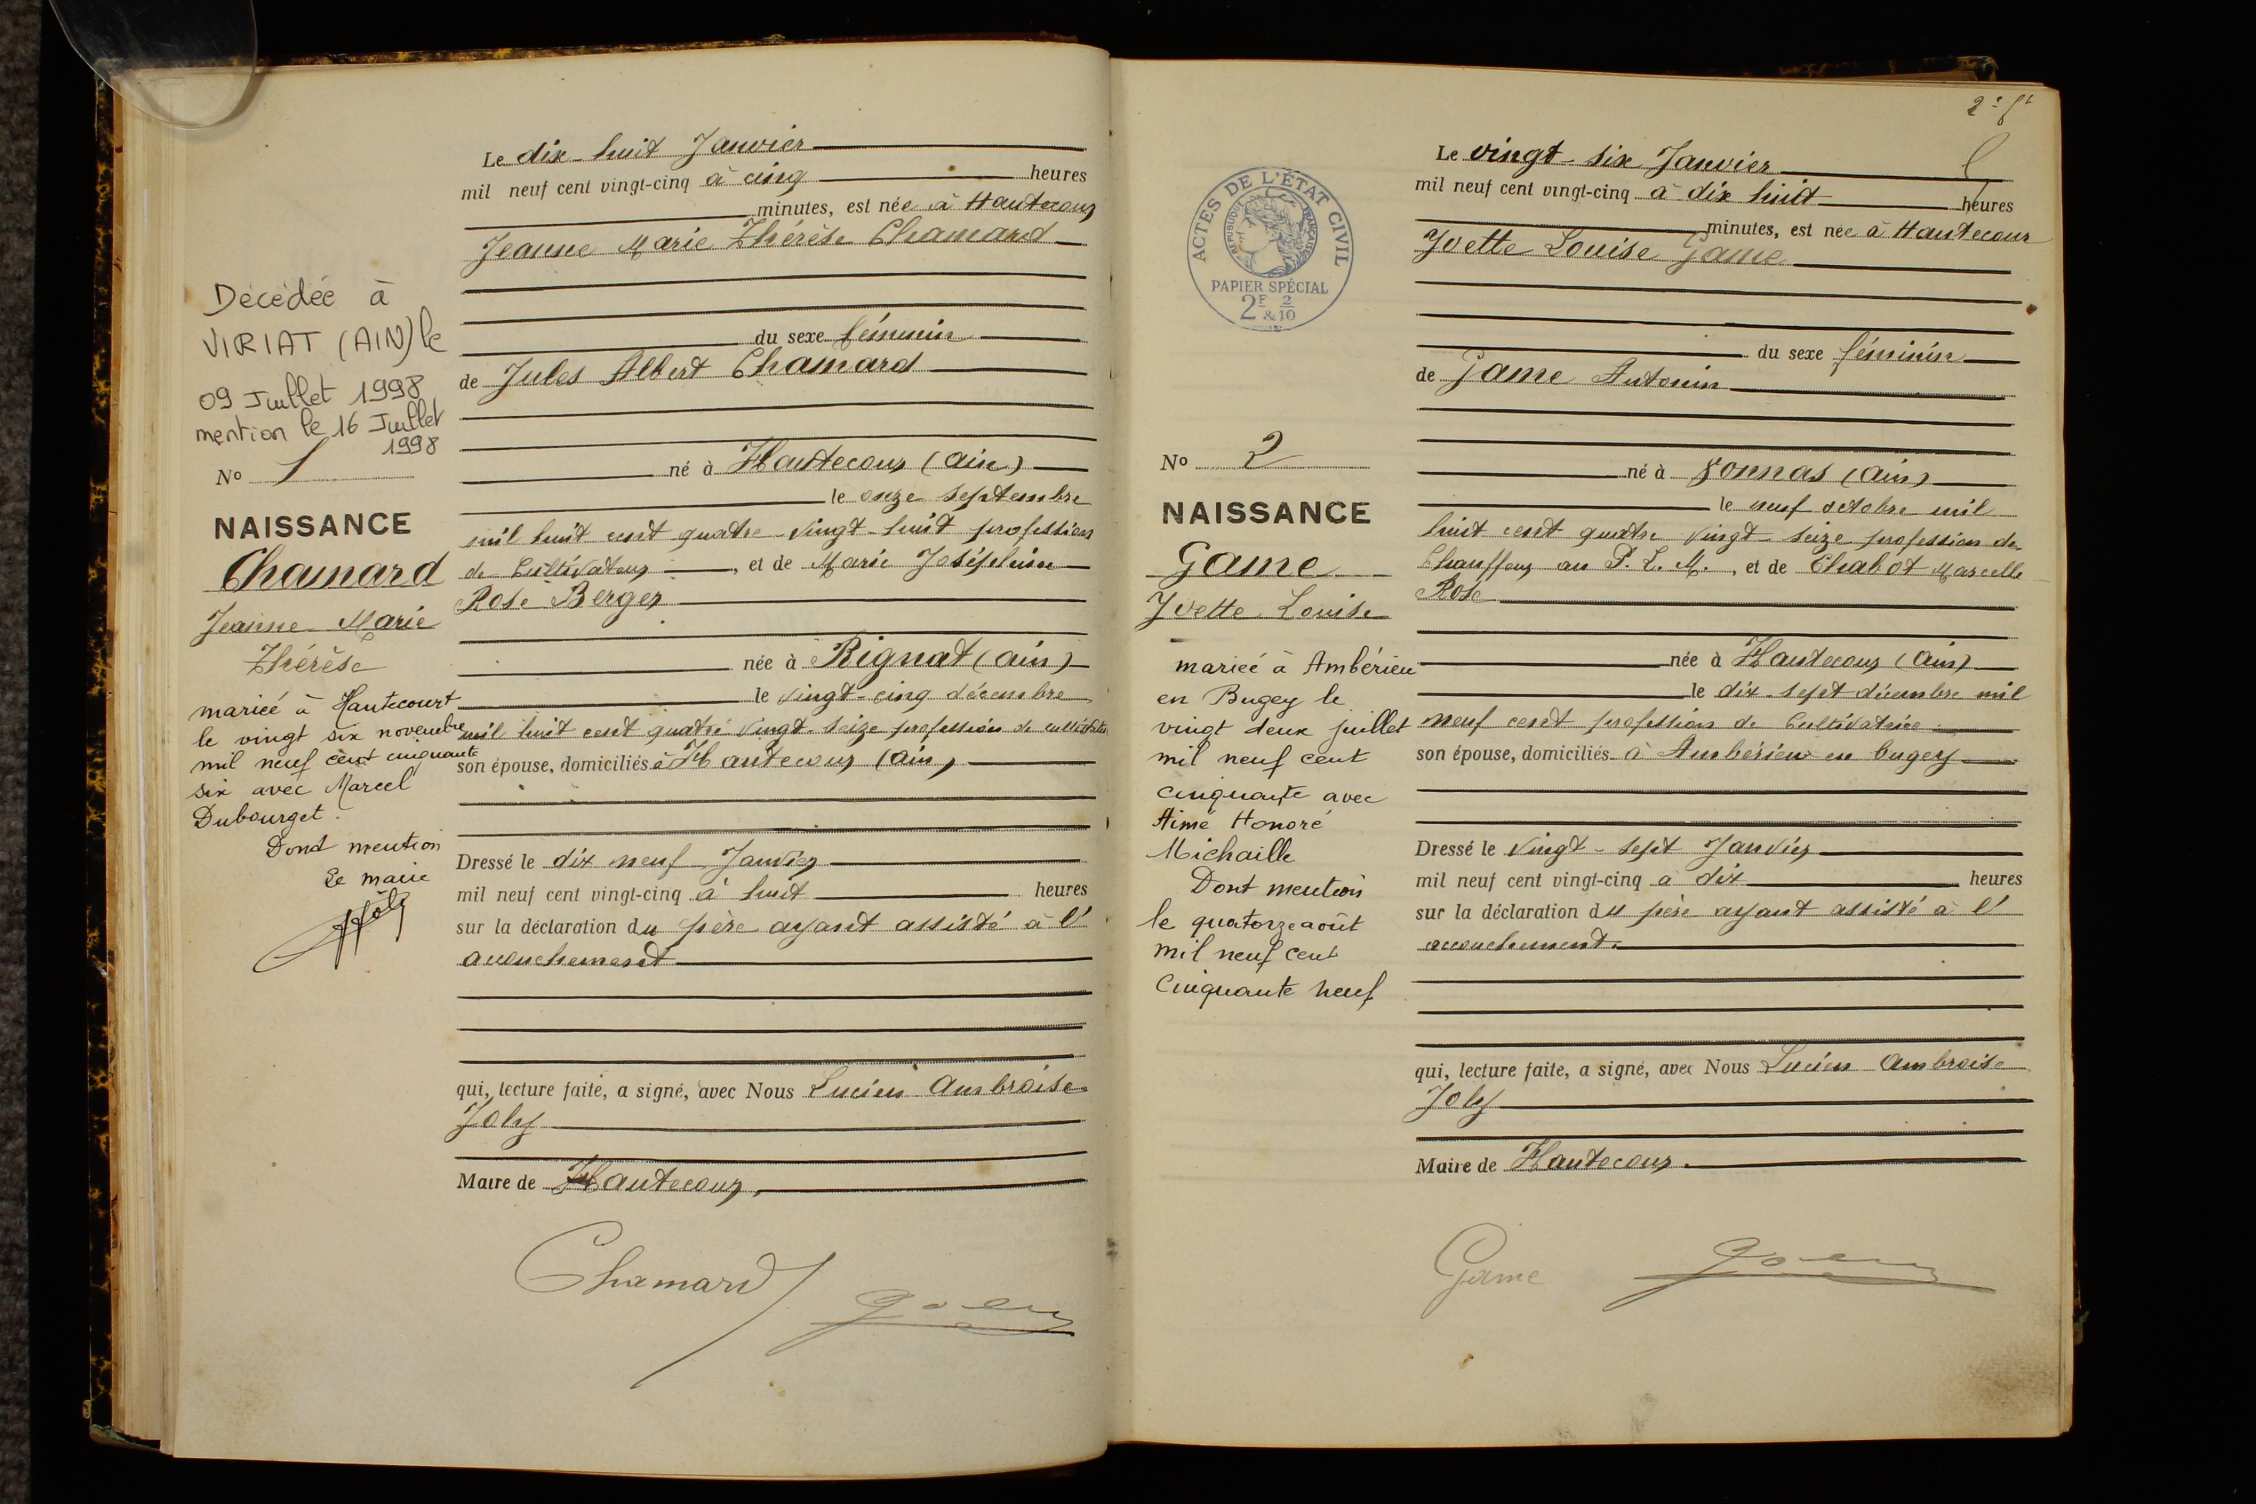 Le dix-huit Janvier
mil neuf cent vingt-cinq à cinq heures
minutes, est née à Hautecour
Jeanne Marie Thérèse Chamard
du sexe féminin
de Jules Albert Chamard
né à Hautecour (Ain)
le onze septembre
mil huit cent quatre-vingt-huit profession
de Cultivateur, et de Marie Joséphine
Rose Berger
née à Rignat (Ain)
le vingt-cinq décembre
mil huit cent quatre vingt-seize profession de cultivatrice
son épouse, domiciliés à Hautecour (Ain)
Dressé le dix neuf Janvier
mil neuf cent vingt-cinq à huit heures
sur la déclaration du père ayant assisté à l'
accouchement
qui, lecture faite, a signé, avec Nous Lucien Ambroise
Joly
Maire de Hautecour.
Chamard
Décédée à
VIRIAT (AIN) le
09 Juillet 1998
mention le 16 Juillet
1998
No 1
NAISSANCE
Chamard
Jeanne Marie
Thérèse
mariée à Hautecourt
le vingt six novembre
mil neuf cent cinquante
six avec Marcel
Dubourget.
Dont mention
Le maire
Joly
2e ft
ACTES DE L'ÉTAT CIVIL
RÉPUBLIQUE FRANÇAISE
PAPIER SPÉCIAL
2F & 2/10
Le vingt-six Janvier
mil neuf cent vingt-cinq à dix huit heures
minutes, est née à Hautecour
Yvette Louise Game
du sexe féminin
de Game Antonin
né à Vonnas (Ain)
le neuf octobre mil
huit cent quatre vingt-seize profession de
Chauffeur au P.L.M., et de Chabot Marcelle
Rose
née à Hautecour (Ain)
le dix-sept décembre mil
neuf cent profession de Cultivatrice
son épouse, domiciliés à Ambérieu en bugey
Dressé le vingt-sept Janvier
mil neuf cent vingt-cinq à dix heures
sur la déclaration du père ayant assisté à l'
accouchement.
qui, lecture faite, a signé, avec Nous Lucien Ambroise
Joly
Maire de Hautecour.
Game
No 2
NAISSANCE
Game
Yvette Louise
mariée à Ambérieu
en Bugey le
vingt deux juillet
mil neuf cent
cinquante avec
Aimé Honoré
Michaille
Dont mention
le quatorze août
mil neuf cent
Cinquante neuf